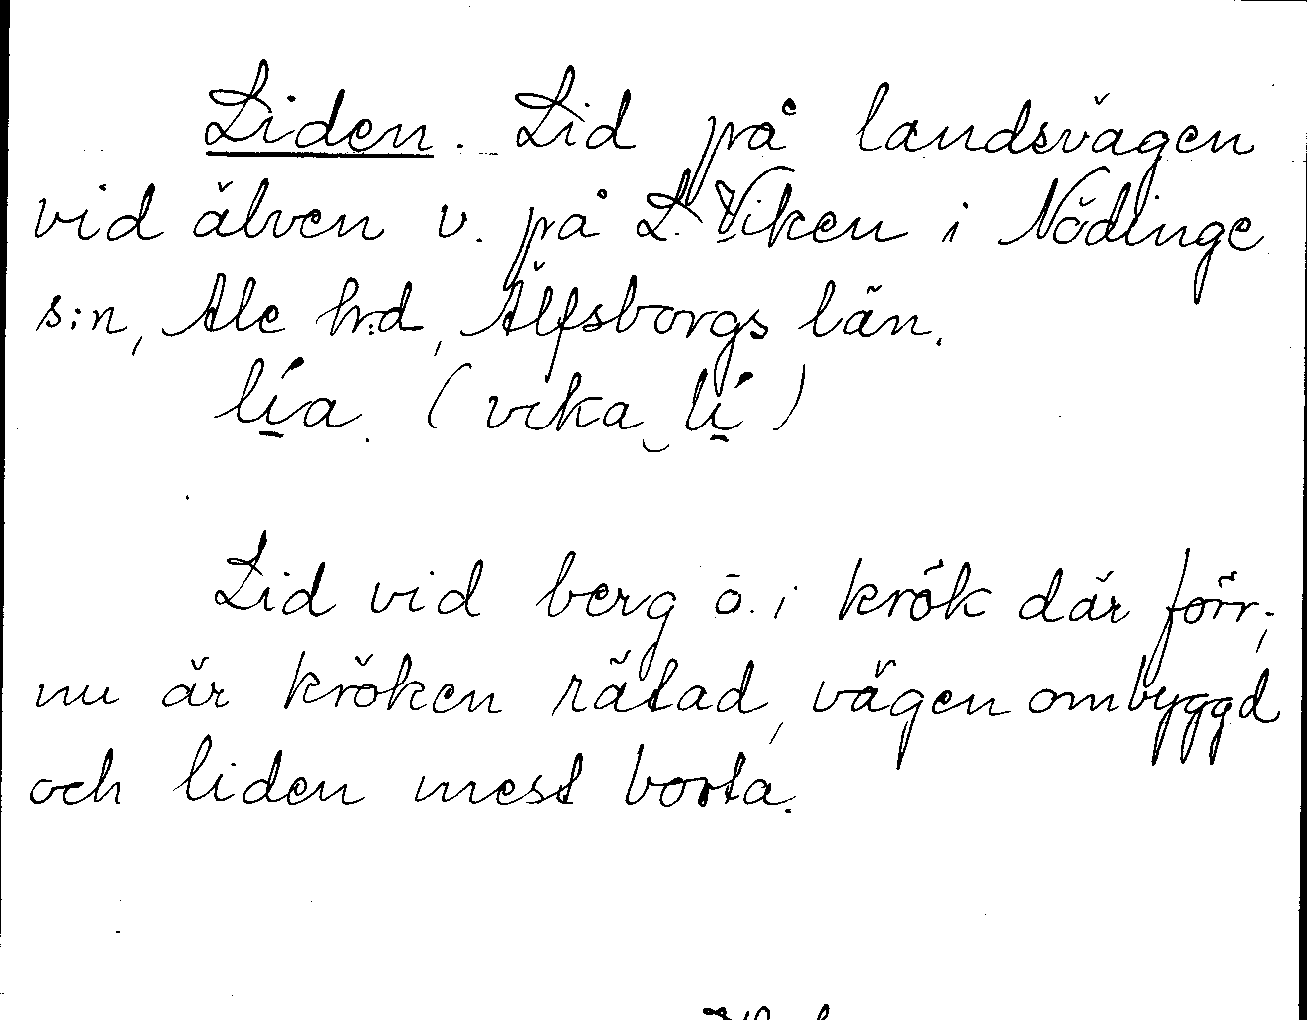 Liden. Lid på landsvägen
vid älven v. på L. Viken i Nödinge
s:n, Ale h:d, Älfsborgs län.
lía. (vika‿lí)
Lid vid berg ö. i krök där förr;
nu är kröken rätad, vägen ombyggd
och liden mest borta.